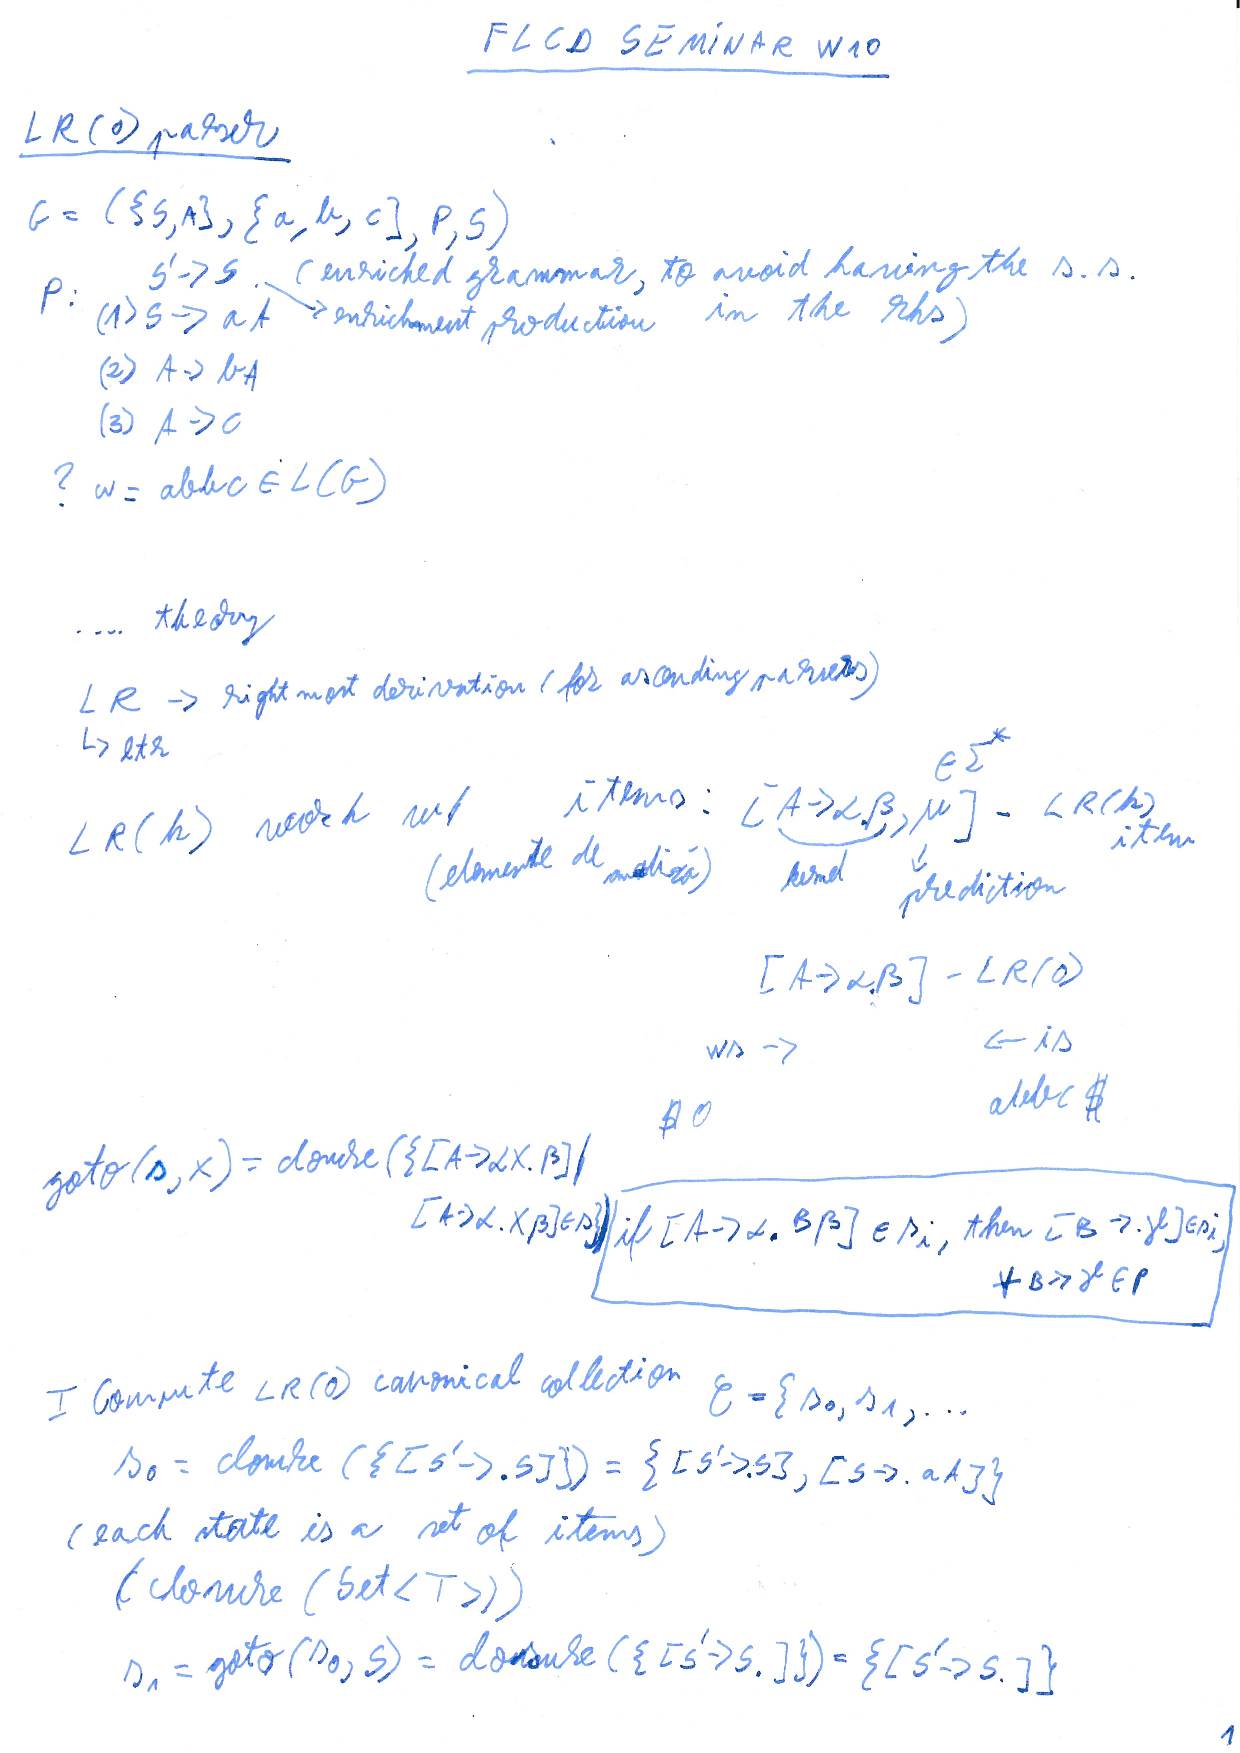 FLCD SEMINAR W10
LR(0) parser
G = ({S,A}, {a, b, c}, P, S)
P: S' -> S . (enriched grammar, to avoid having the s.s.
(1) S -> aA -> enrichment production in the rhs)
(2) A -> bA
(3) A -> c
? w = abbc ∈ L(G)
.... theory
LR -> rightmost derivation (for ascending parsers)
↳ ltr
∈ Σ*
LR(k) work w/ items: [A -> α.β, u] - LR(k) item
(elemente de analiză) kernel prediction
[A -> α.β] - LR(0)
ws -> <- is
$ 0 abbc $
goto(s, X) = closure({[A -> αX.β] |
[A -> α.Xβ] ∈ s}) if [A -> α.Bβ] ∈ si, then [B -> .γ] ∈ si,
∀ B -> γ ∈ P
I Compute LR(0) canonical collection ℰ = {s0, s1, ...
s0 = closure ({[S' -> .S]}) = {[S' -> .S], [S -> .aA]}
(each state is a set of items)
(closure (Set<T>))
s1 = goto(s0, S) = closure({[S' -> S.]}) = {[S' -> S.]}
1